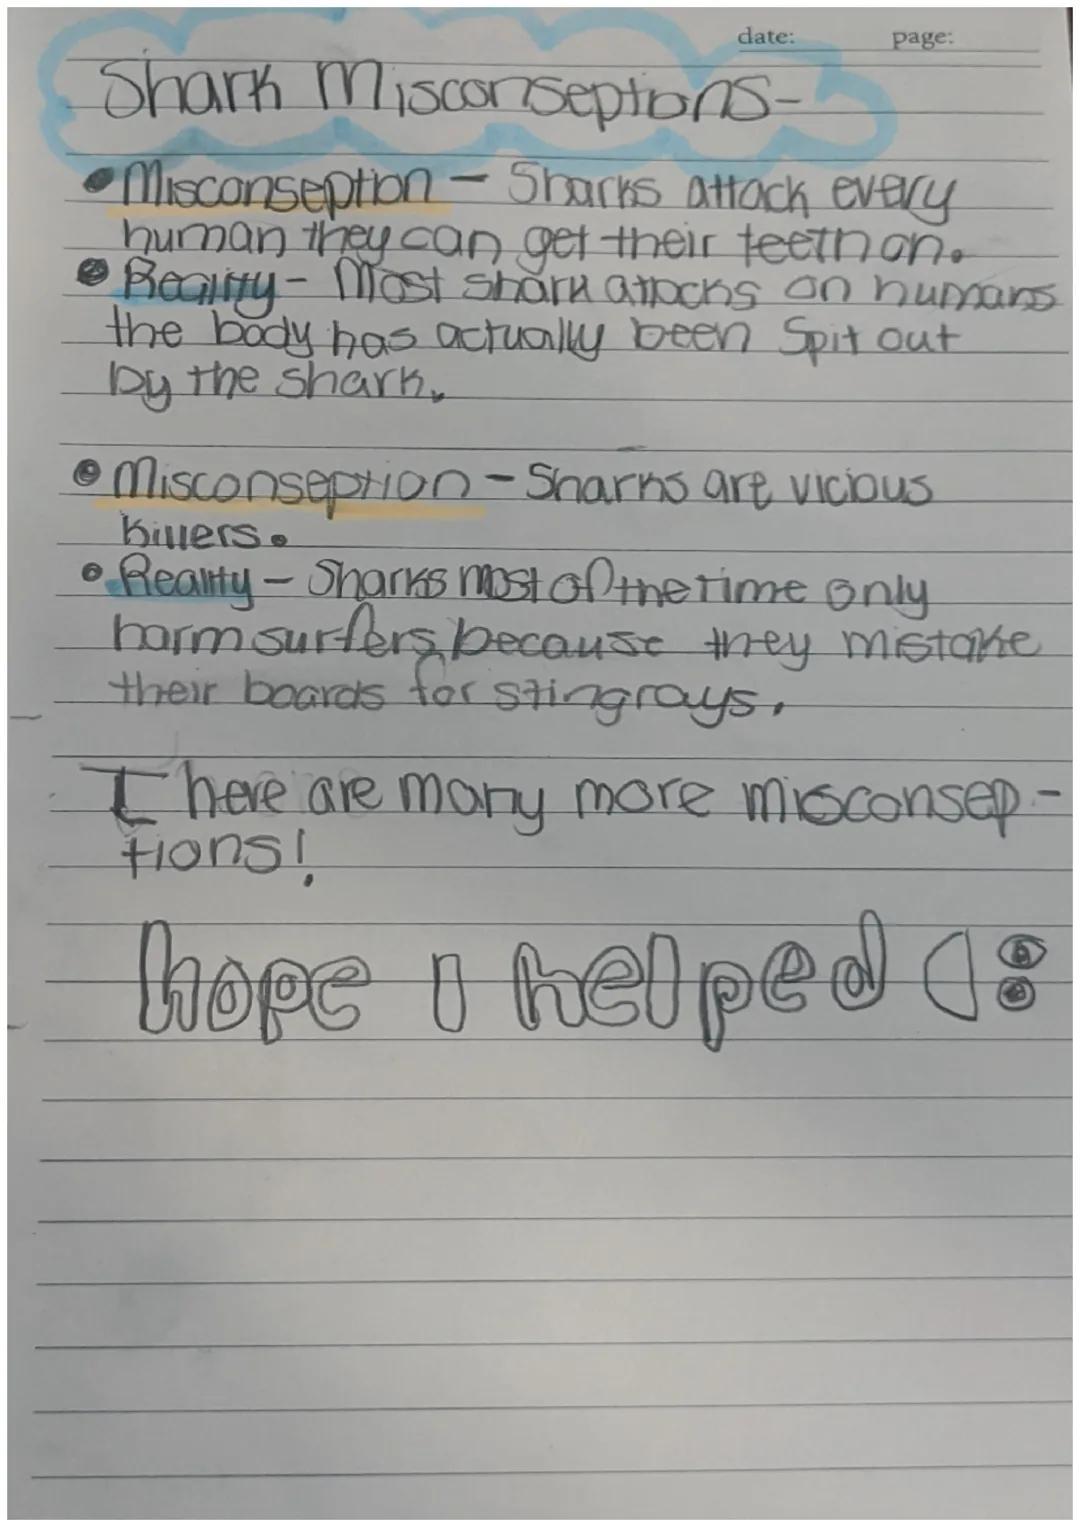 date: page:
Shark Misconseptions-
• Misconseption - Sharks attack every
human they can get their teeth on.
• Reality - Most shark attacks on humans
the body has actually been Spit out
by the shark.
• Misconseption - Sharks are vicious
killers.
• Reality - Sharks most of the time only
harm surfers because they mistake
their boards for stingrays.
There are many more misconsep-
tions!
hope I helped (: